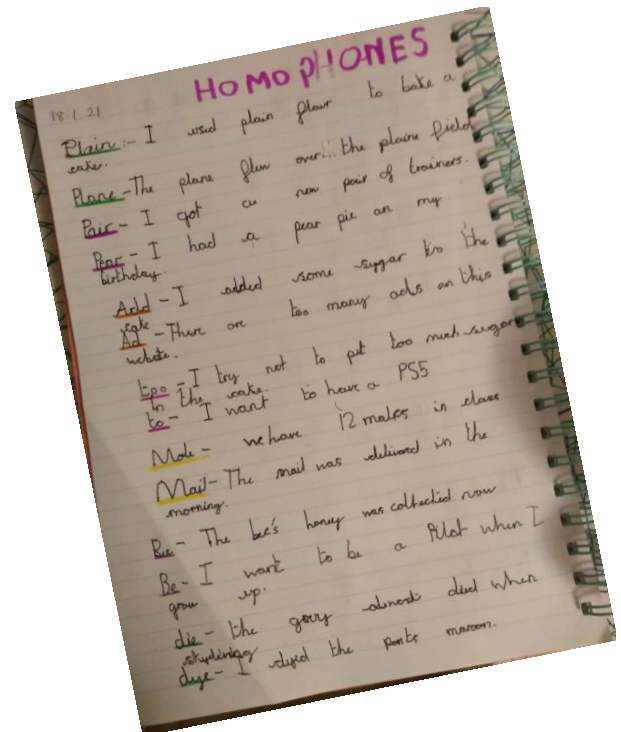 HOMOPHONES
18.1.21
Plain:- I used plain flour to bake a
cake.
Plane -The plane flew over the plaine field
Pair - I got a new pair of trainers.
Pear - I had a pear pie on my
birthday.
Add - I added some sugar to the
cake
Ad -There are too many ads on this
website.
too - I try not to put too much sugar
in the cake.
to - I want to have a PS5
Male - we have 12 males in class
Mail- The mail was delivered in the
morning.
Bee - The bee's honey was collected now
Be - I want to be a Pilot when I
grow up.
die - the almost died when
skydiving
dye - I dyed the pants maroon.